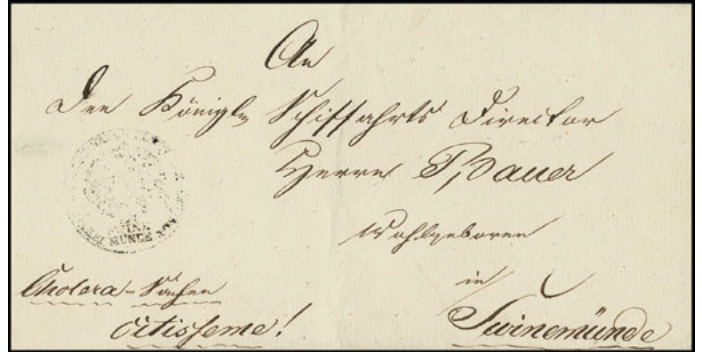 An
Den Königln Schiffahrts Director
Herrn Bauer
Wohlgeboren
in
Swinemünde
Cholera-Sachen
citissime!